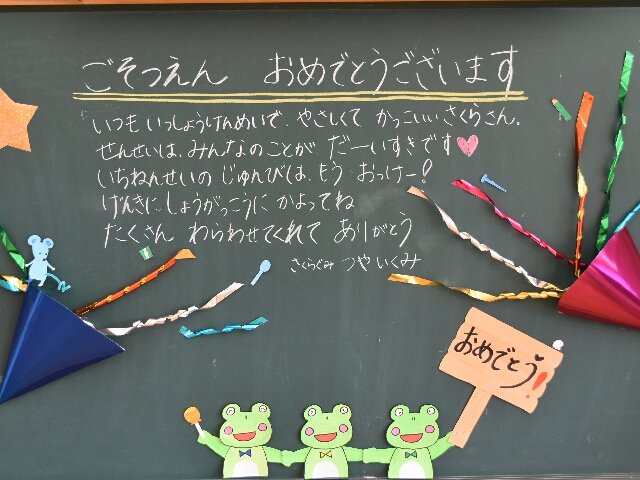 ごそつえん　おめでとうございます
いつも いっしょうけんめいで、やさしくて かっこいい さくらさん。
せんせいは、みんなのことが だーいすきです♥
いちねんせいの じゅんびは、もう おっけー!
げんきに しょうがっこうに かよってね
たくさん わらわせてくれて ありがとう
さくらぐみ つや いくみ
おめでとう!